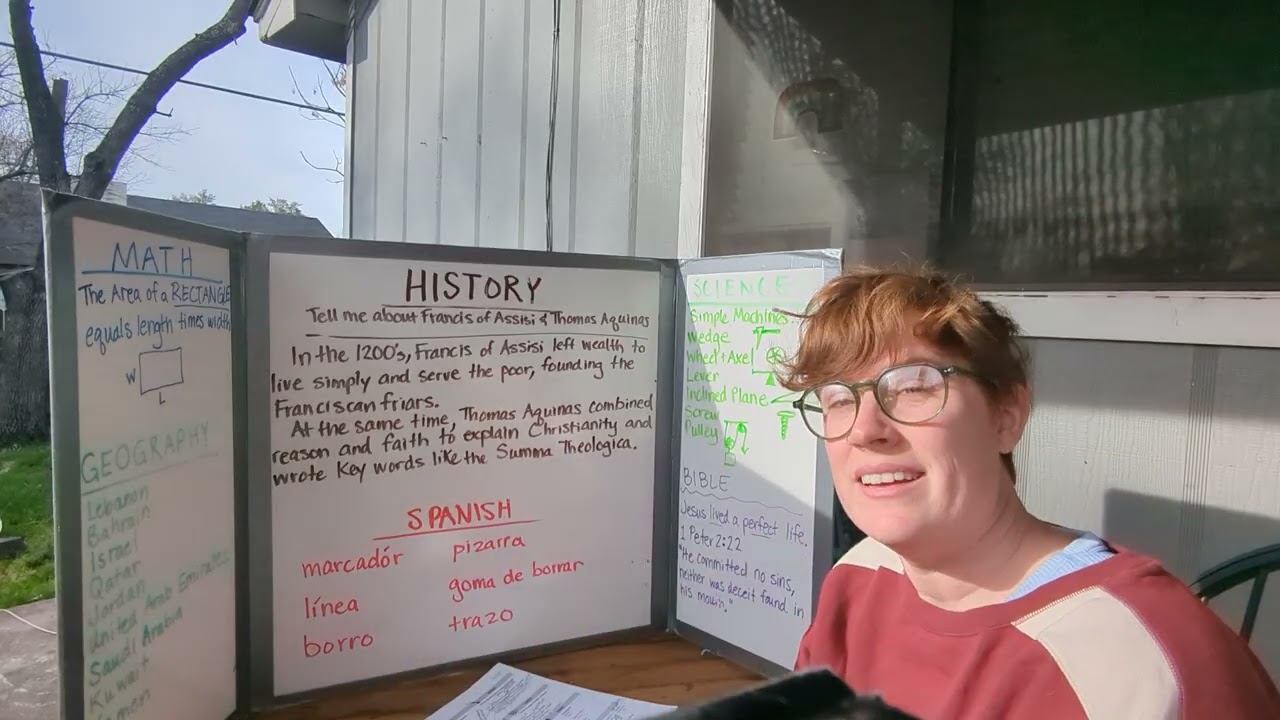 MATH
The Area of a RECTANGLE
equals length times width
W
L
GEOGRAPHY
Lebanon
Bahrain
Israel
Qatar
Jordan
United Arab Emirates
Saudi Arabia
Kuwait
Yemen
HISTORY
Tell me about Francis of Assisi & Thomas Aquinas
In the 1200's, Francis of Assisi left wealth to
live simply and serve the poor, founding the
Franciscan friars.
At the same time, Thomas Aquinas combined
reason and faith to explain Christianity and
wrote key words like the Summa Theologica.
SPANISH
marcadór
línea
borro
pizarra
goma de borrar
trazo
SCIENCE
Simple Machines
Wedge
Wheel + Axel
Lever
Inclined Plane
Screw
Pulley
BIBLE
Jesus lived a perfect life.
1 Peter 2:22
"He committed no sins,
neither was deceit found in
his mouth."